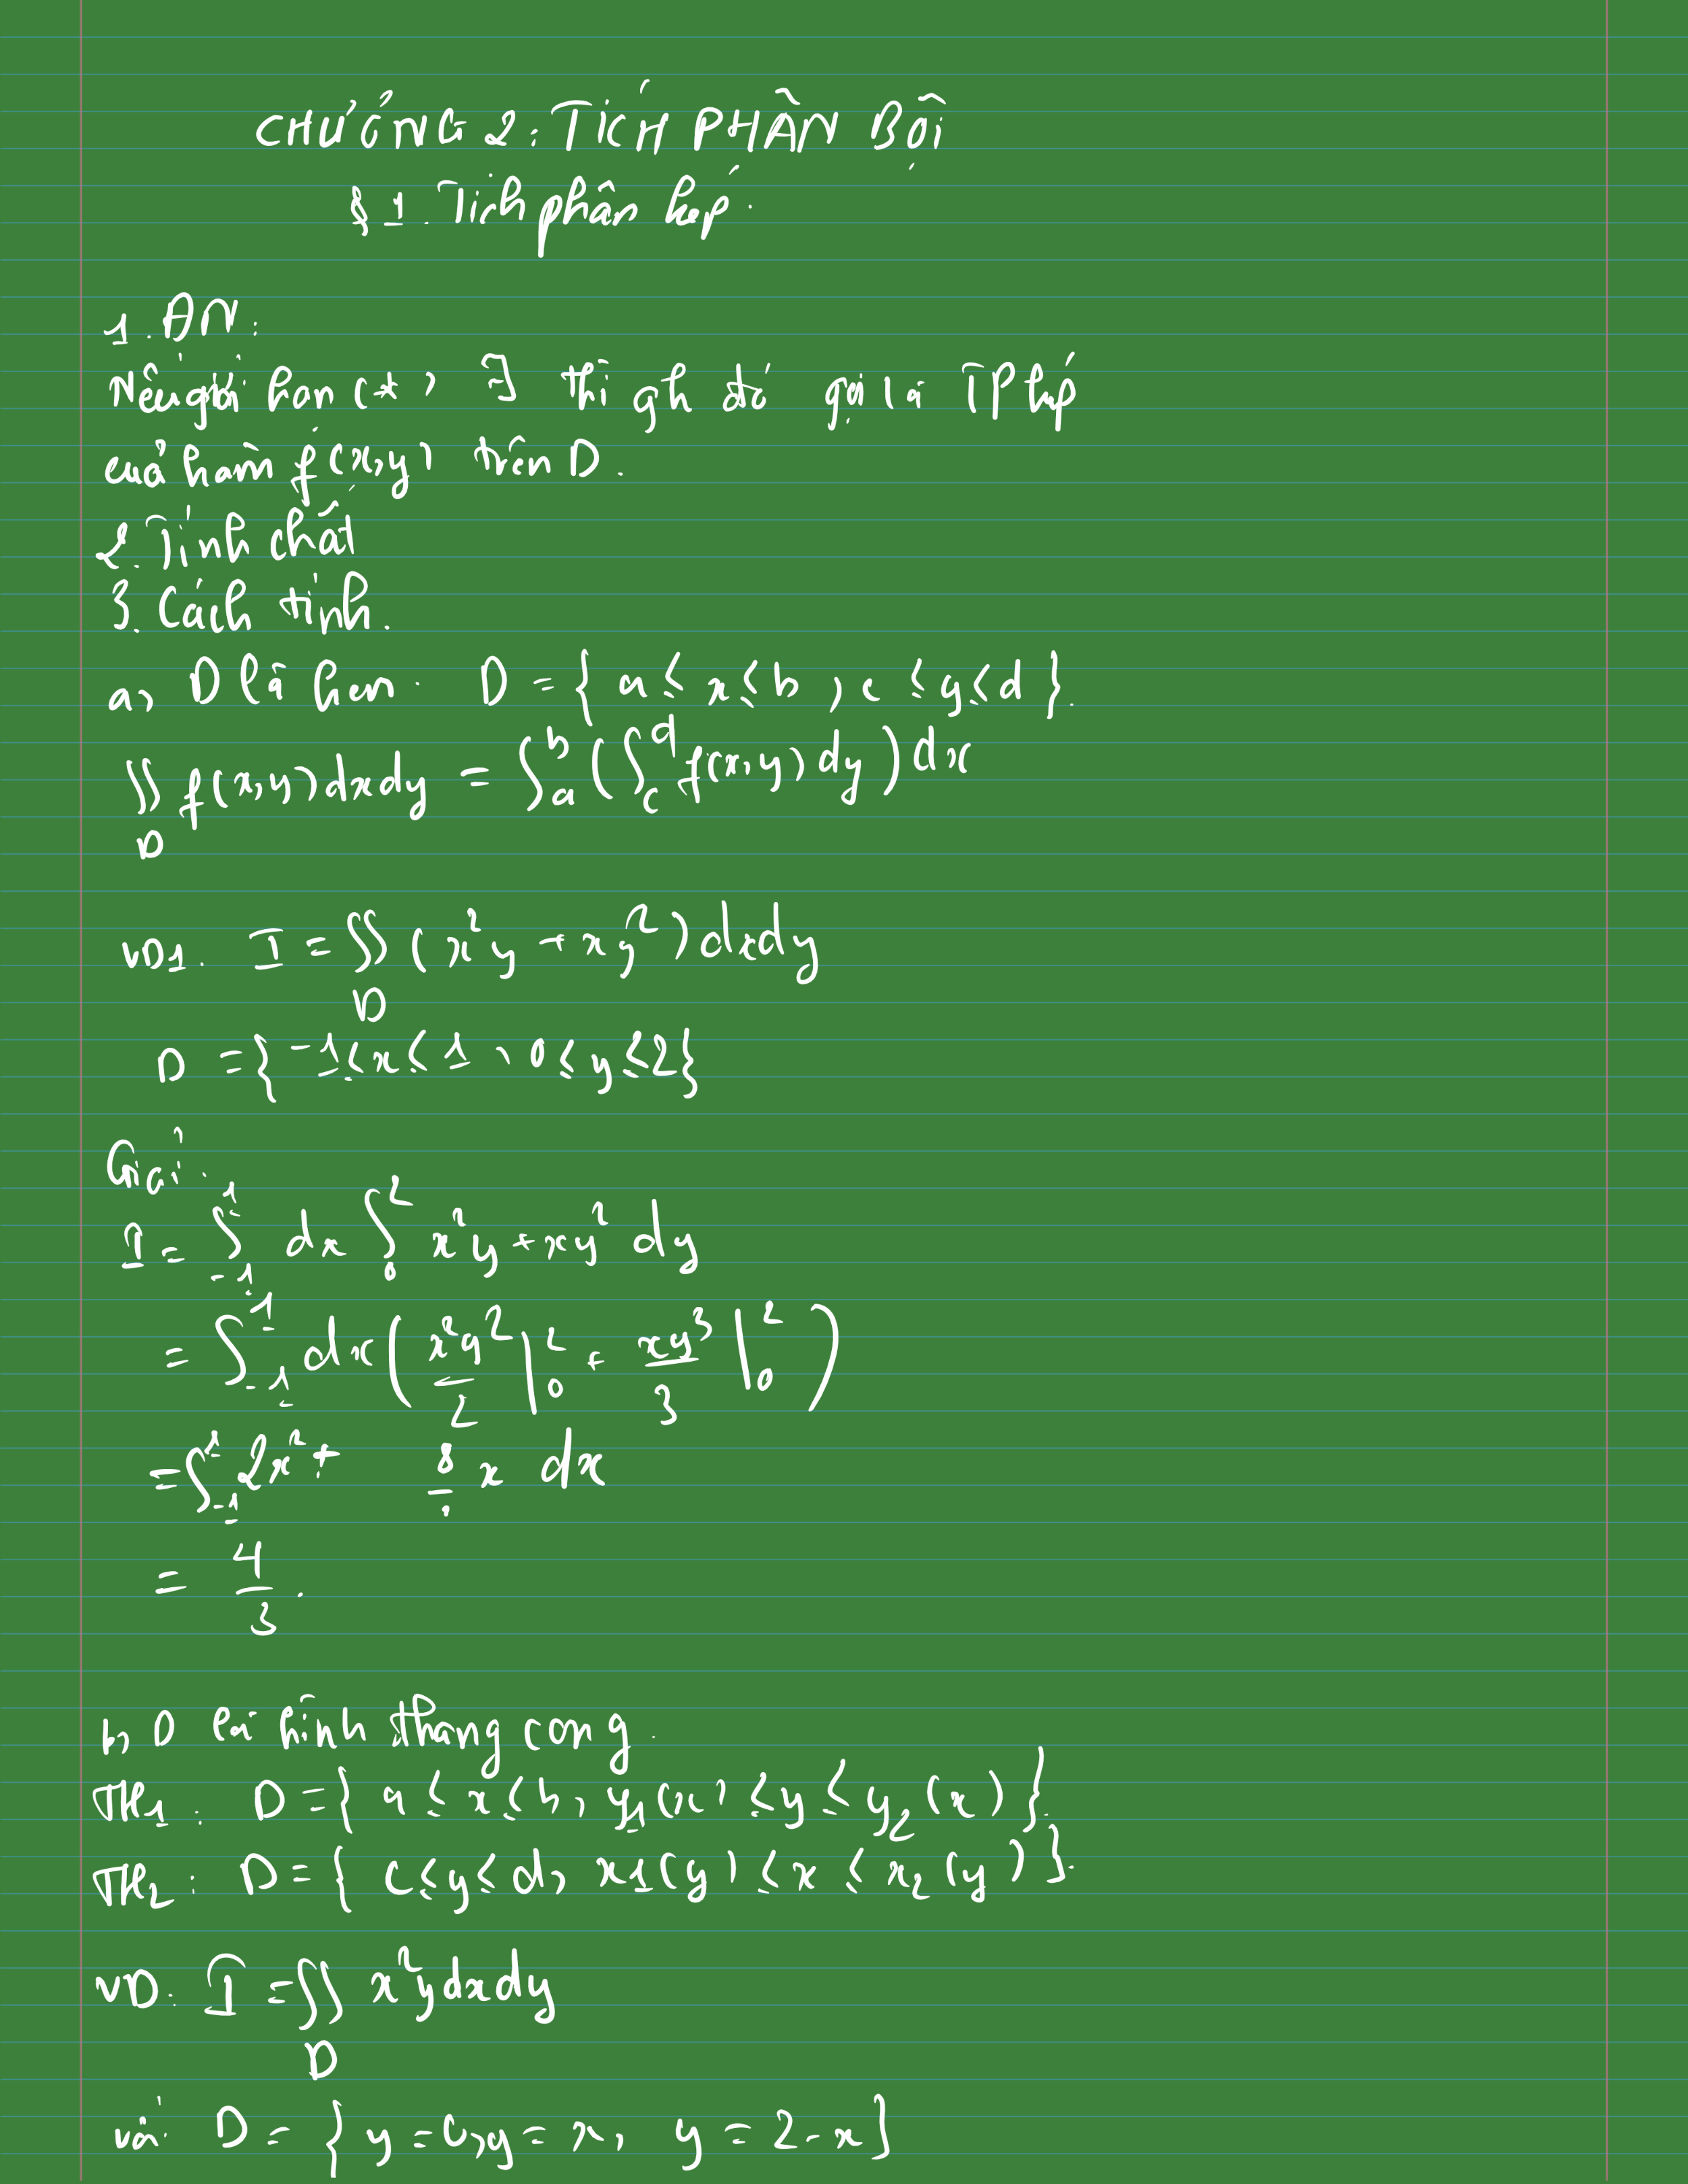 CHƯƠNG 2: TÍCH PHÂN BỘI
§1. Tích phân kép.
1. ĐN:
Nếu giới hạn (*) ∃ thì gh đó gọi là TP kép
của hàm f(x,y) trên D.
2. Tính chất
3. Cách tính.
a, D là hcn. D = { a ≤ x ≤ b, c ≤ y ≤ d }.
∬_D f(x,y) dxdy = ∫_a^b ( ∫_c^d f(x,y) dy ) dx
VD1. I = ∬_D ( x²y + xy² ) dxdy
D = { -1 ≤ x ≤ 1, 0 ≤ y ≤ 2 }
Giải.
I = ∫_{-1}^1 dx ∫_0^2 x²y + xy² dy
= ∫_{-1}^1 dx ( x²y²/2 |_0^2 + xy³/3 |_0^2 )
= ∫_{-1}^1 2x² + 8/ x dx
= 4/3.
b, D là hình thang cong.
TH1: D = { a ≤ x ≤ b, y₁(x) ≤ y ≤ y₂(x) }.
TH2: D = { c ≤ y ≤ d, x₁(y) ≤ x ≤ x₂(y) }.
VD. I = ∬_D x²y dxdy
với D = { y = 0, y = x, y = 2 - x }